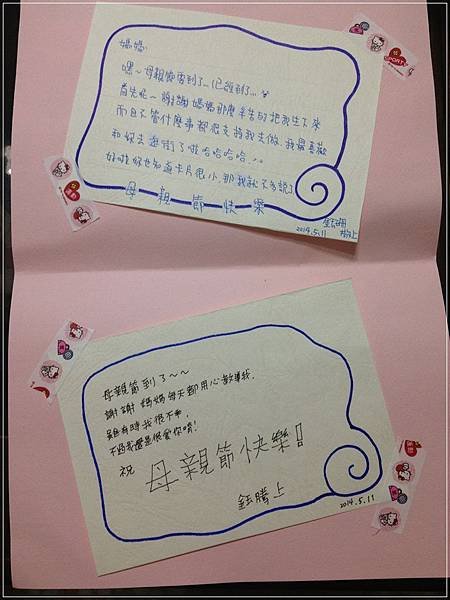 媽媽:
嘿~母親節要到了…(已經到了…
首先呢~謝謝媽媽那麼辛苦的把我生下來
而且不管什麼事都很支持我去做，我最喜歡
和妳去逛街了啦哈哈哈哈...
好啦妳也知道卡片很小，那我就不多說了
母親節快樂
2014.5.11
上
SPORTY
母親節到了~~
謝謝 媽媽每天都用心教導我，
雖有時我很不乖，
不過我還是很愛你唷!
祝
母親節快樂!!
鈺騰上
2014.5.11